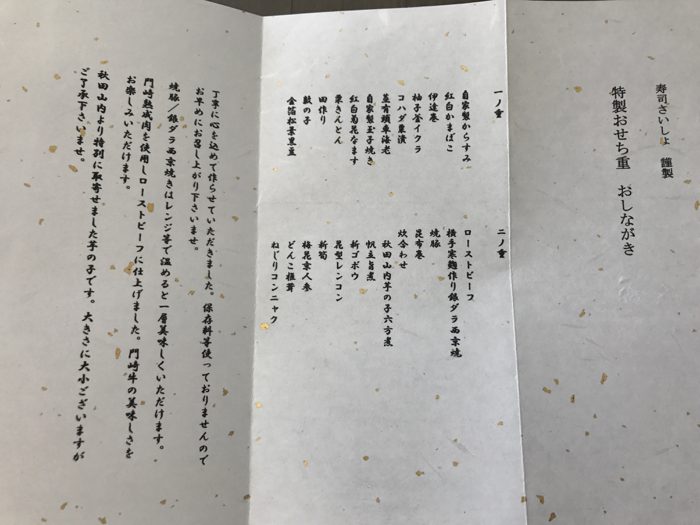 寿司さいしょ 謹製
特製おせち重 おしながき
一ノ重
自家製からすみ
紅白かまぼこ
伊達巻
柚子釜イクラ
コハダ粟漬
菫有頭車海老
自家製玉子焼き
紅白菊花なます
栗きんとん
田作り
数の子
金箔松葉黒豆
二ノ重
ローストビーフ
横手家麹作り銀ダラ西京焼
焼豚
昆布巻
炊合わせ
秋田山内芋の子六方煮
帆立旨煮
新ゴボウ
花型レンコン
新筍
梅花京人参
どんこ椎茸
ねじりコンニャク
丁寧に心を込めて作らせていただきました。保存料等使っておりませんので
お早めにお召し上がり下さいませ。
焼豚/銀ダラ西京焼きはレンジ等で温めると一層美味しくいただけます。
門崎熟成肉を使用しローストビーフに仕上げました。門崎牛の美味しさを
お楽しみいただけます。
秋田山内より特別に取寄せました芋の子です。大きさに大小ございますが
ご了承下さいませ。